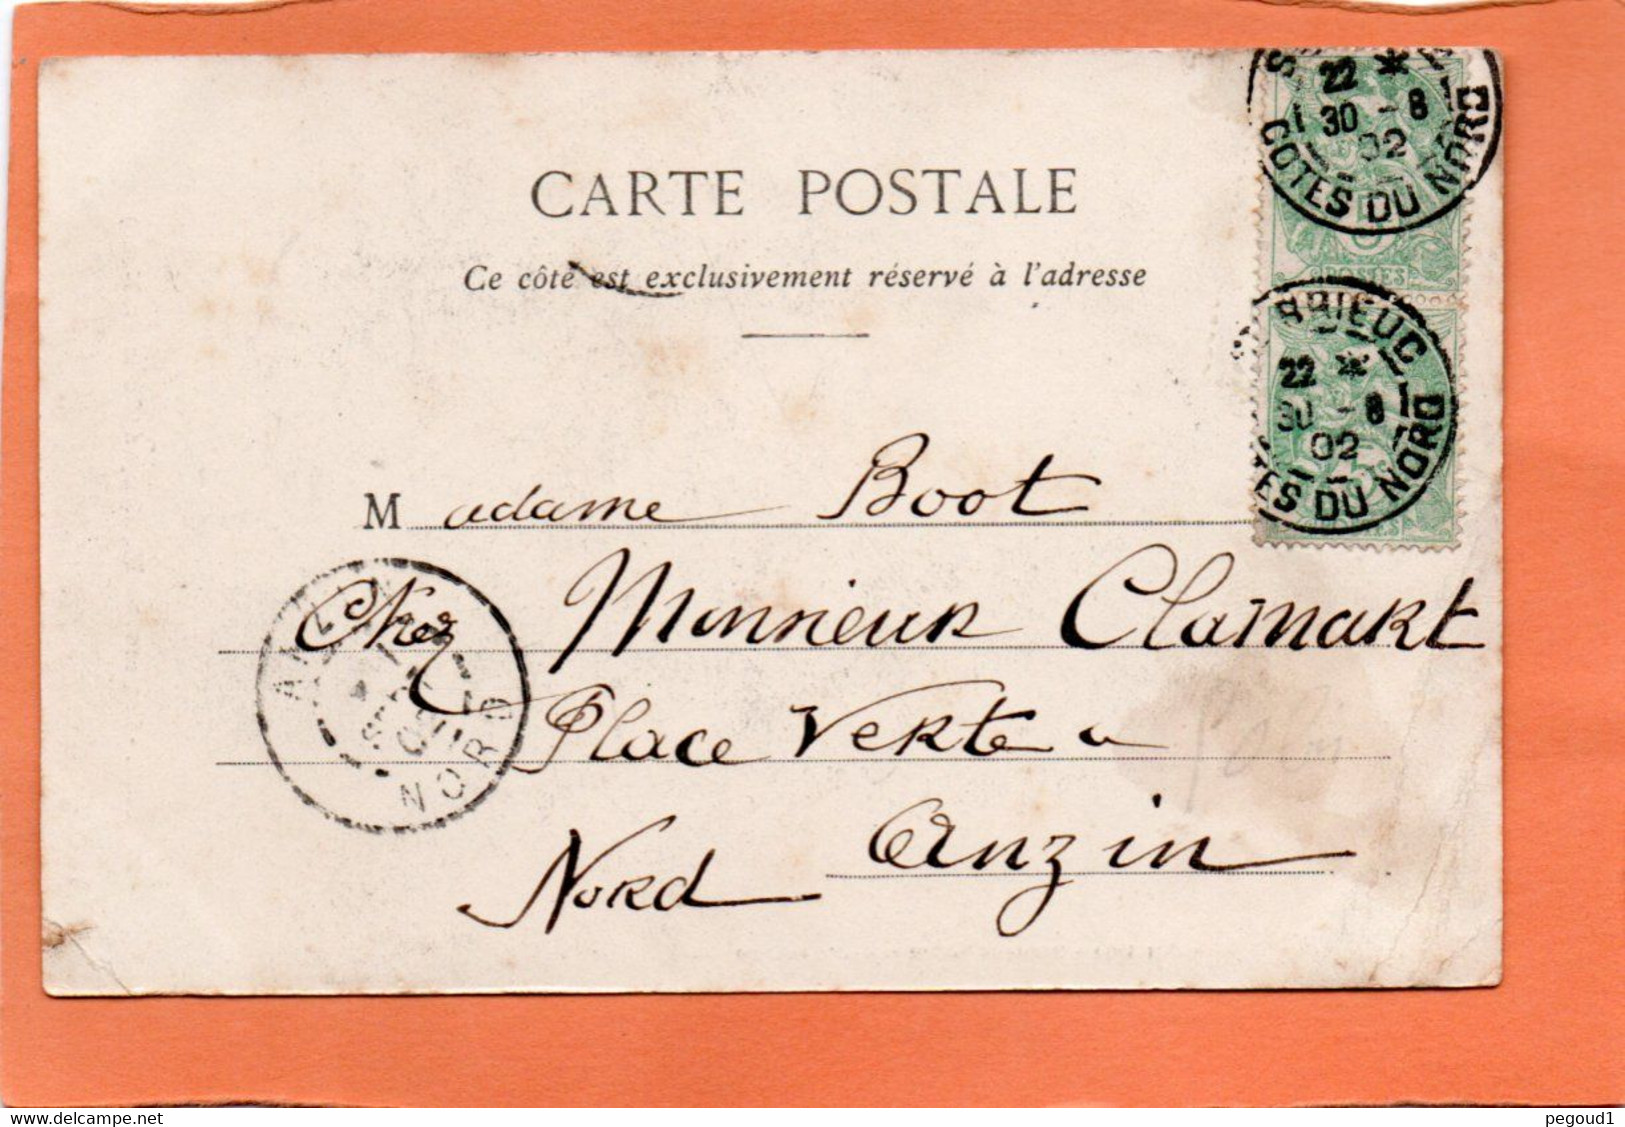 CARTE POSTALE
Ce côté est exclusivement réservé à l'adresse
22 *
30 - 8
02
COTES DU NORD
POSTES
BRIEUC
22 *
30 - 8
02
TES DU NORD
Madame Boot
Chez Monsieur Clainakt
Place Verte a
Anzin
Nord
NORD
pegoud1